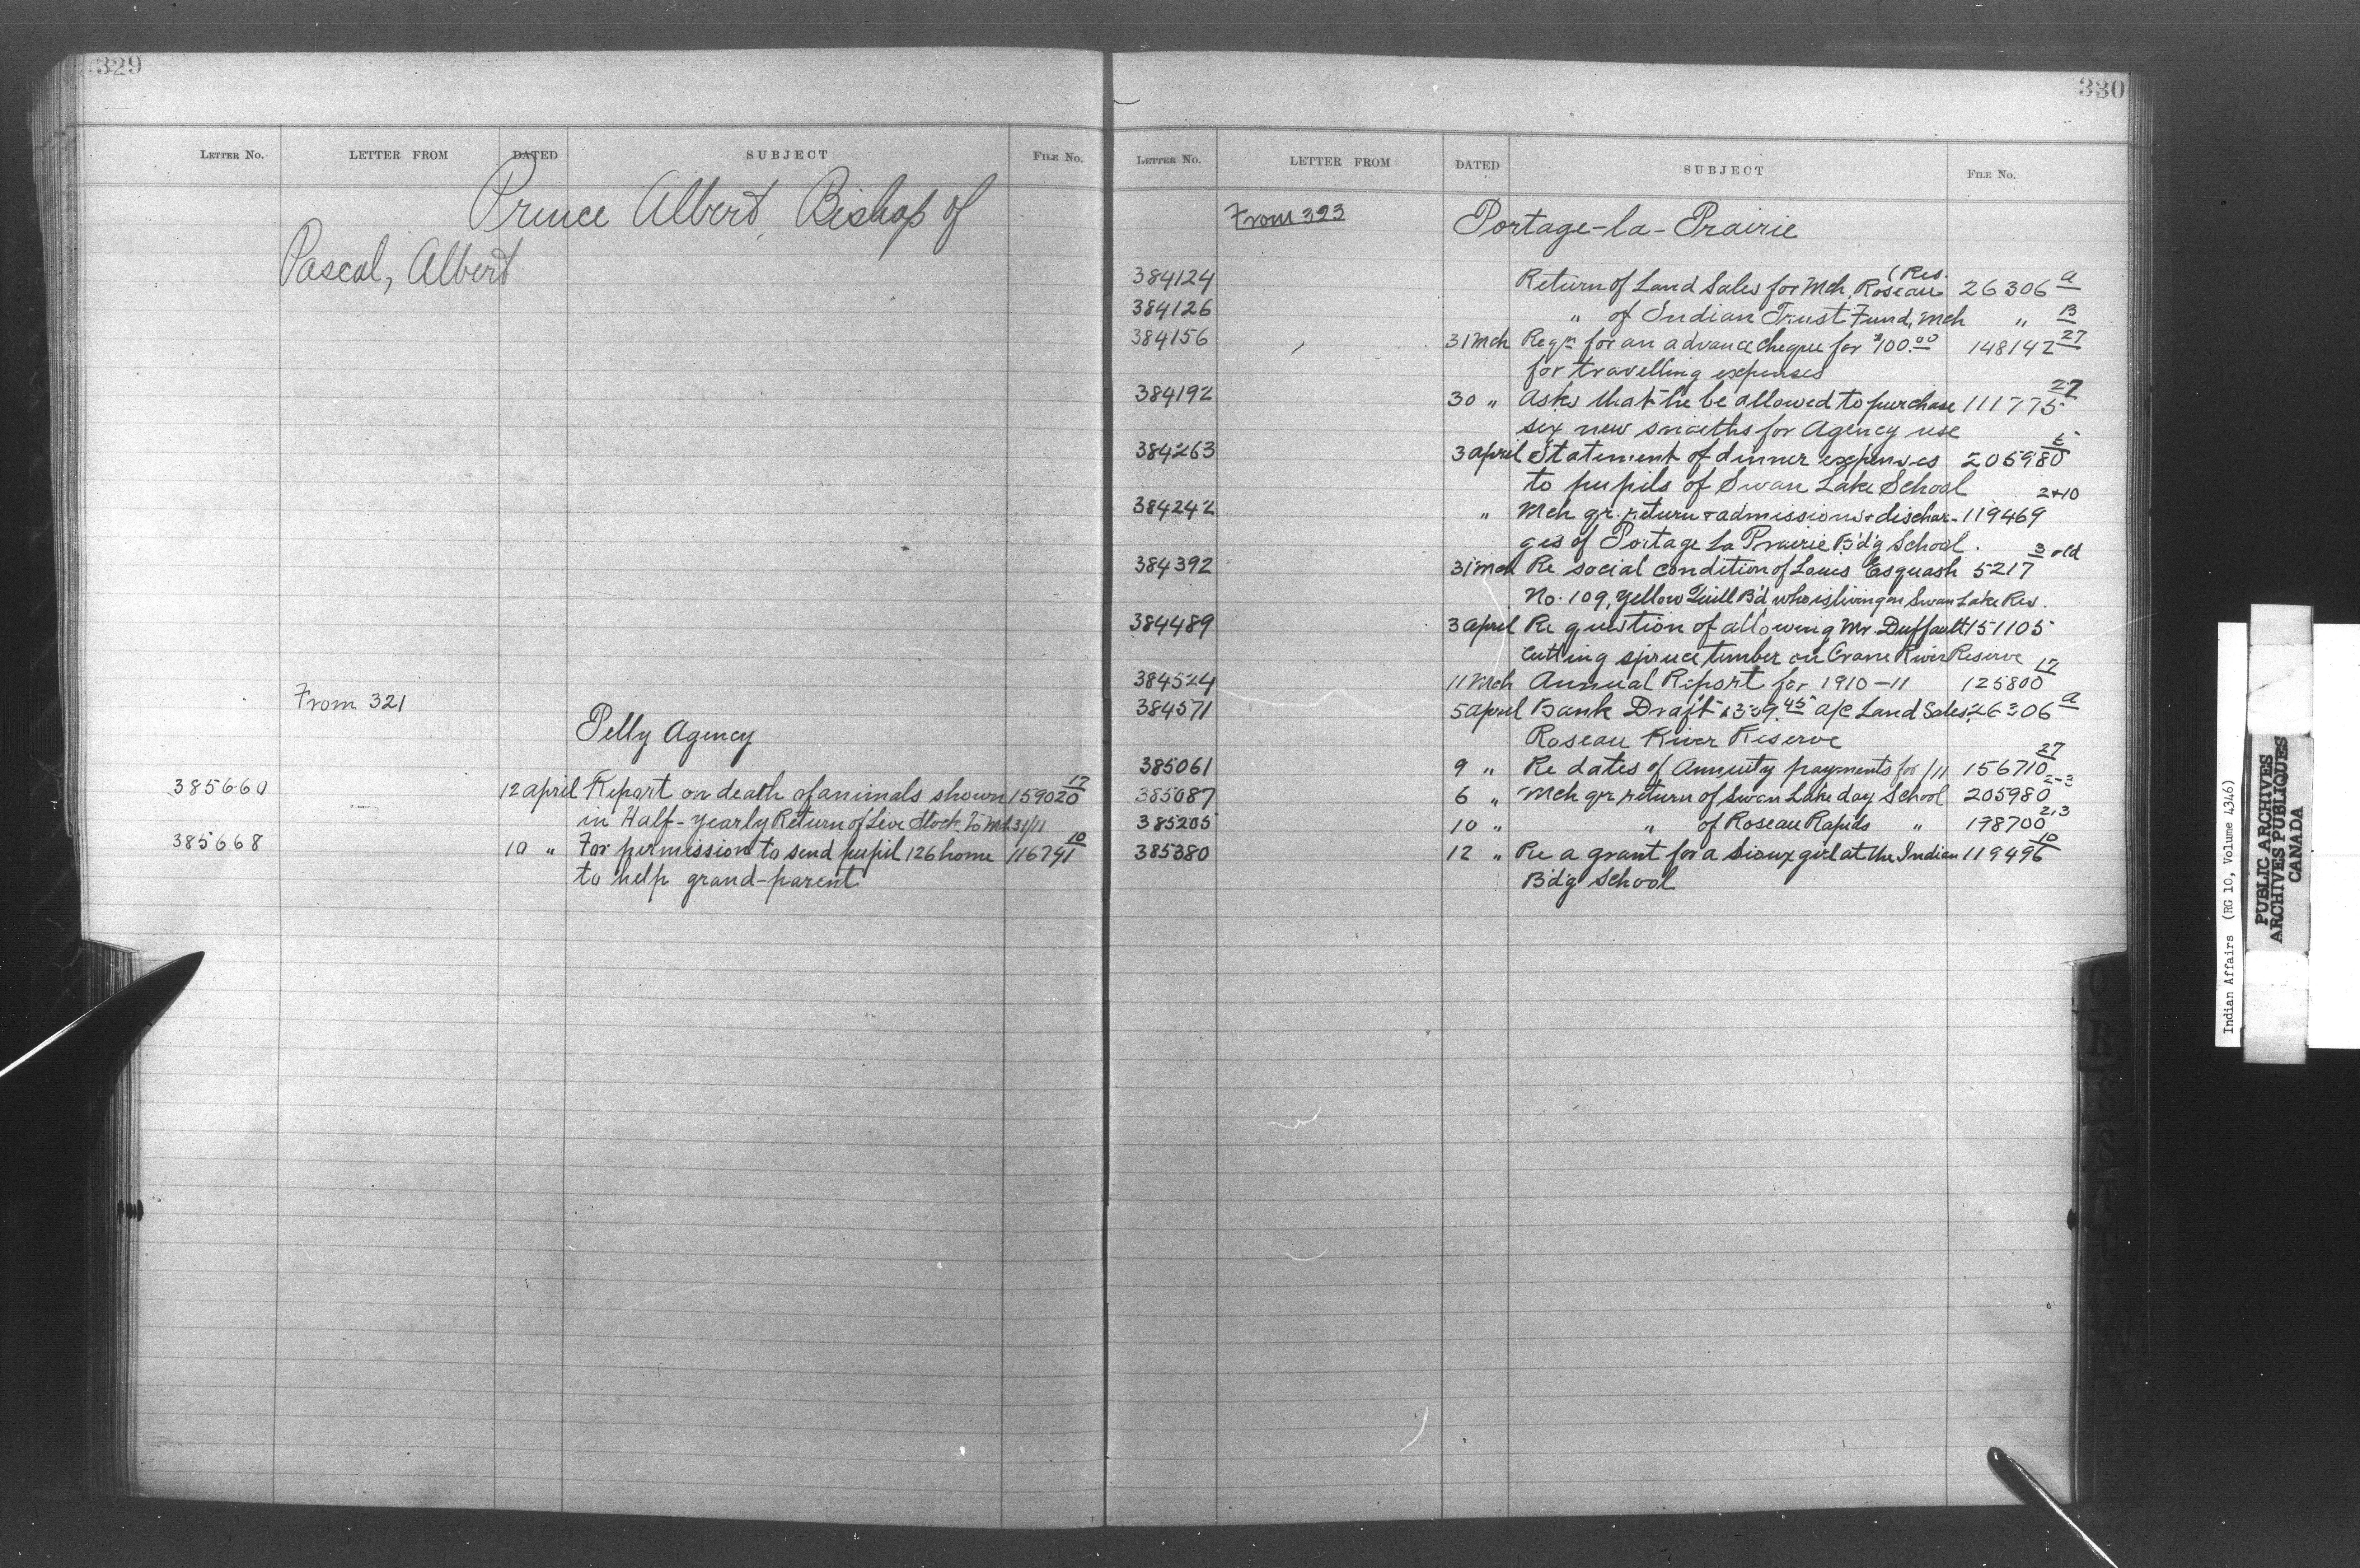 329
LETTER NO. LETTER FROM DATED SUBJECT FILE NO.
Prince Albert, Bishop of
Pascal, Albert
From 321
Pelly Agency
385660 12 april Report on death of animals shown 159020 12
in Half-yearly Return of Live Stock to Mch 31/11
385668 10 " For permission to send pupil 126 home 116741 10
to help grand-parent
330
LETTER NO. LETTER FROM DATED SUBJECT FILE NO.
From 323 Portage-la-Prairie
(Res.
384124 Return of Land Sales for Mch, Roseau 26306 a
384126 " of Indian Trust Fund, Mch " B
384156 31 Mch Reqn for an advance cheque for $100.00 148142 27
for travelling expenses
384192 30 " Asks that he be allowed to purchase 111775 27
six new for Agency use
384263 3 april Statement of dinner expenses 205980
to pupils of Swan Lake School
384242 " Mch qr. return admissions + dischar- 119469 2+10
ges of Portage La Prairie B'd'g School.
384392 31 Mch Re social condition of Louis Esquash 5217 3 old
No. 109, Yellow Quill B'd who is living on Swan Lake Res.
384489 3 april Re question of allowing Mr. Duffault 151105
cutting spruce timber on Crane River Reserve
384524 11 Mch Annual Report for 1910-11 125800 17
384571 5 april Bank Draft $339.45 a/c Land Sales 26306 a
Roseau River Reserve
385061 9 " Re dates of Annuity payments for /11 156710 27
385087 6 " Mch qr. return of Swan Lake day School 205980 2-3
385205 10 " " of Roseau Rapids " 198700 2.3
385380 12 " Re a grant for a Sioux girl at the Indian 119496 10
B'd'g School
Indian Affairs (RG 10, Volume 4346)
PUBLIC ARCHIVES
ARCHIVES PUBLIQUES
CANADA